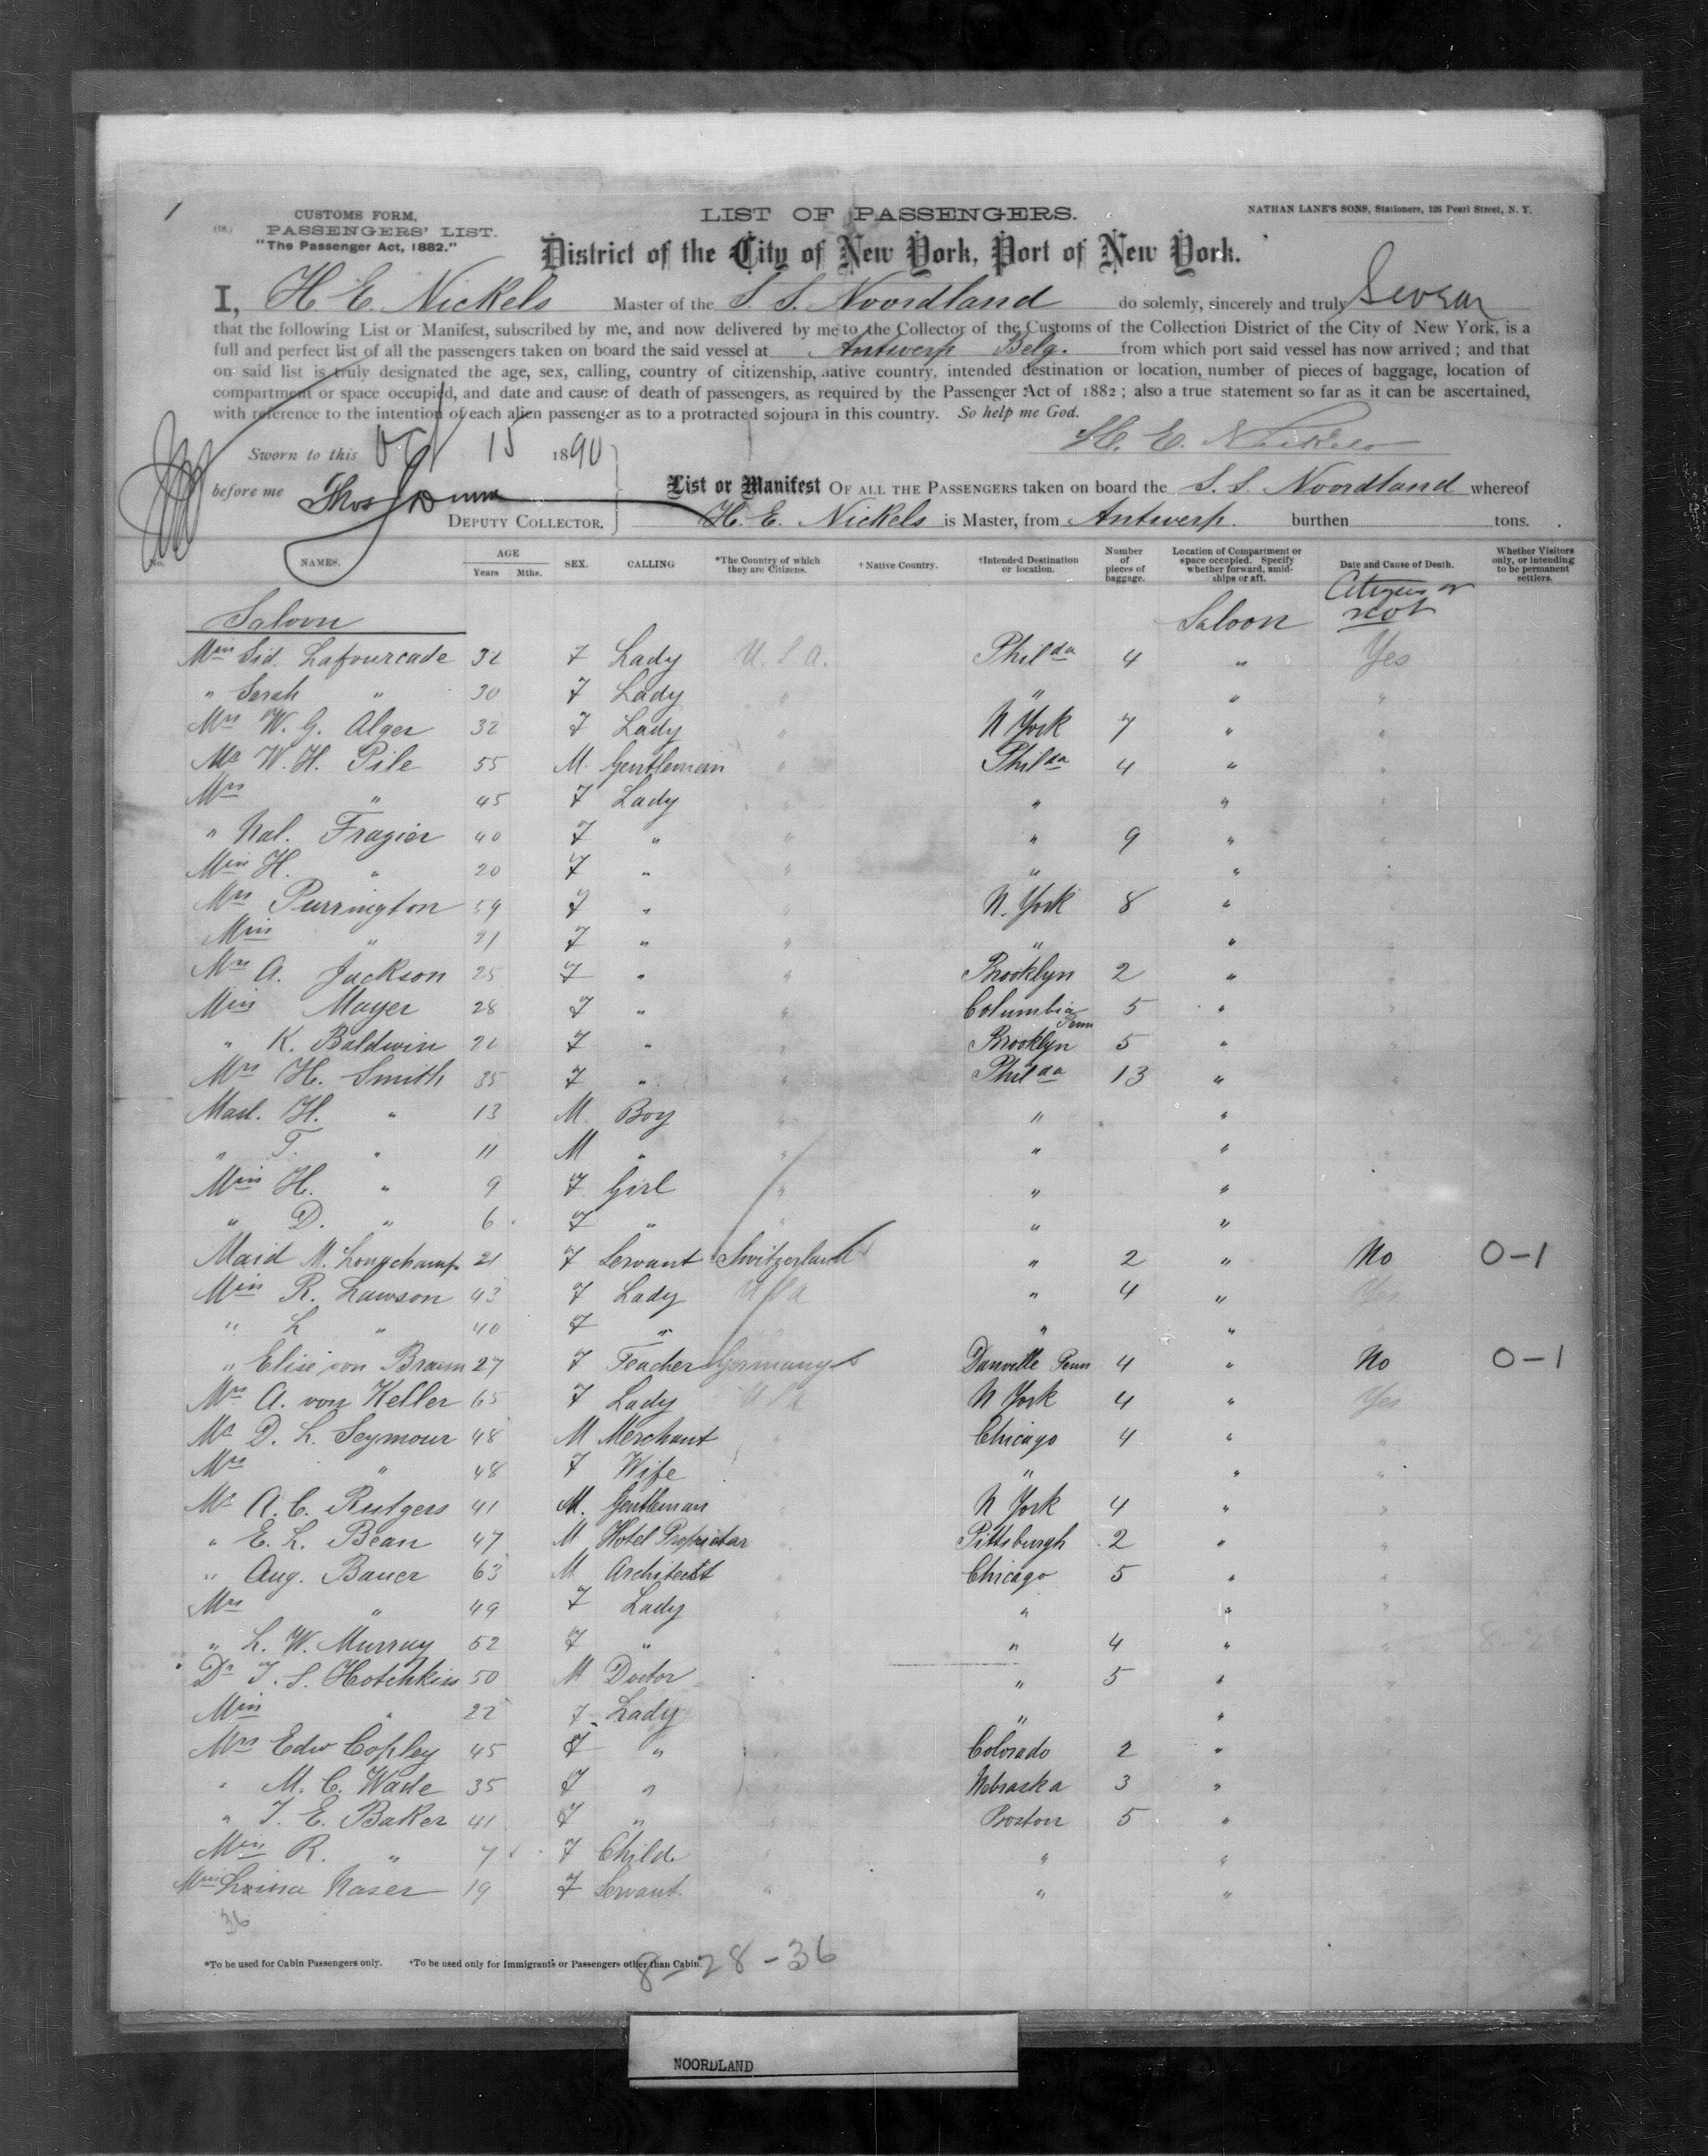 1
CUSTOMS FORM,
PASSENGERS' LIST.
"The Passenger Act, 1882."
LIST OF PASSENGERS.
NATHAN LANE'S SONS, Stationers, 126 Pearl Street, N. Y.
District of the City of New York, Port of New York.
I, H. E. Nickels Master of the S. S. Noordland do solemnly, sincerely and truly Swear
that the following List or Manifest, subscribed by me, and now delivered by me to the Collector of the Customs of the Collection District of the City of New York, is a
full and perfect list of all the passengers taken on board the said vessel at Antwerp Belg. from which port said vessel has now arrived; and that
on said list is truly designated the age, sex, calling, country of citizenship, native country, intended destination or location, number of pieces of baggage, location of
compartment or space occupied, and date and cause of death of passengers, as required by the Passenger Act of 1882; also a true statement so far as it can be ascertained,
with reference to the intention of each alien passenger as to a protracted sojourn in this country. So help me God.
H. E. Nickels
Sworn to this Oct 15 1890
before me Thos Dunn
DEPUTY COLLECTOR.
List or Manifest OF ALL THE PASSENGERS taken on board the S. S. Noordland whereof
H. E. Nickels is Master, from Antwerp. burthen tons.
No. NAMES. AGE Years Mths. SEX. CALLING *The Country of which they are Citizens. †Native Country. †Intended Destination or location. Number of pieces of baggage. Location of Compartment or space occupied. Specify whether forward, amidships or aft. Date and Cause of Death. Whether Visitors only, or intending to be permanent settlers.
Saloon Saloon Citizen or not
Miss Sid. Lafourcade 32 F Lady U. S. A. Philda 4 " Yes
" Sarah " 30 F Lady " " " "
Mrs W. G. Alger 32 F Lady " N York 7 " "
Mr W. H. Pile 55 M. Gentleman " Philda 4 " "
Mrs " 45 F Lady " " " "
" Nal. Frazier 40 F " " " 9 " "
Miss H. " 20 F " " " " "
Mrs Purrington 59 F " " N. York 8 "
Miss " 21 F " " " " "
Mrs A. Jackson 25 F " " Brooklyn 2 " "
Miss Mayer 28 F " " Columbia Penn 5 " "
" K. Baldwin 22 F " " Brooklyn 5 " "
Mrs H. Smith 35 F " " Philda 13 " "
Mast. H. " 13 M. Boy " " "
" T. " 11 M " " " "
Miss H. " 9 F Girl " " "
" D. " 6 F " " " "
Maid M. Longchamp 21 F Servant Switzerland " 2 " No 0-1
Miss R. Lawson 43 F Lady U S A " 4 " Yes
" L " 40 F " " "
" Elise von Braum 27 F Teacher Germany Danville Penn 4 " No 0-1
Mrs A. von Keller 65 F Lady U S A N York 4 " Yes
Mr D. L. Seymour 48 M Merchant Chicago 4 " "
Mrs " 48 F Wife " " "
Mr A. C. Rutgers 41 M. Gentleman N York 4 " "
" E. L. Bean 47 M Hotel Proprietor " Pittsburgh 2 " "
" Aug. Bauer 63 M Architect " Chicago 5 " "
Mrs " 49 F Lady " " " "
" L. W. Murray 52 F " " " 4 " "
Dr F. S. Hotchkiss 50 M Doctor " 5 " "
Miss " 22 F. Lady " " "
Mrs Edw Copley 45 F " " Colorado 2 "
" M. C. Wade 35 F " Nebraska 3 "
" F. E. Baker 41 F " " Boston 5 "
Miss R. " 7 F Child " " "
Naser 19 F Servant " " "
36
*To be used for Cabin Passengers only. †To be used only for Immigrants or Passengers other than Cabin.
8-28-36
NOORDLAND